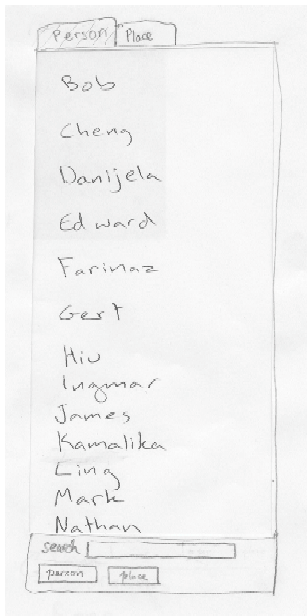 Person Place
Bob
Cheng
Danijela
Edward
Farinaz
Gert
Hiu
Ingmar
James
Kamalika
Ling
Mark
Nathan
search
person place